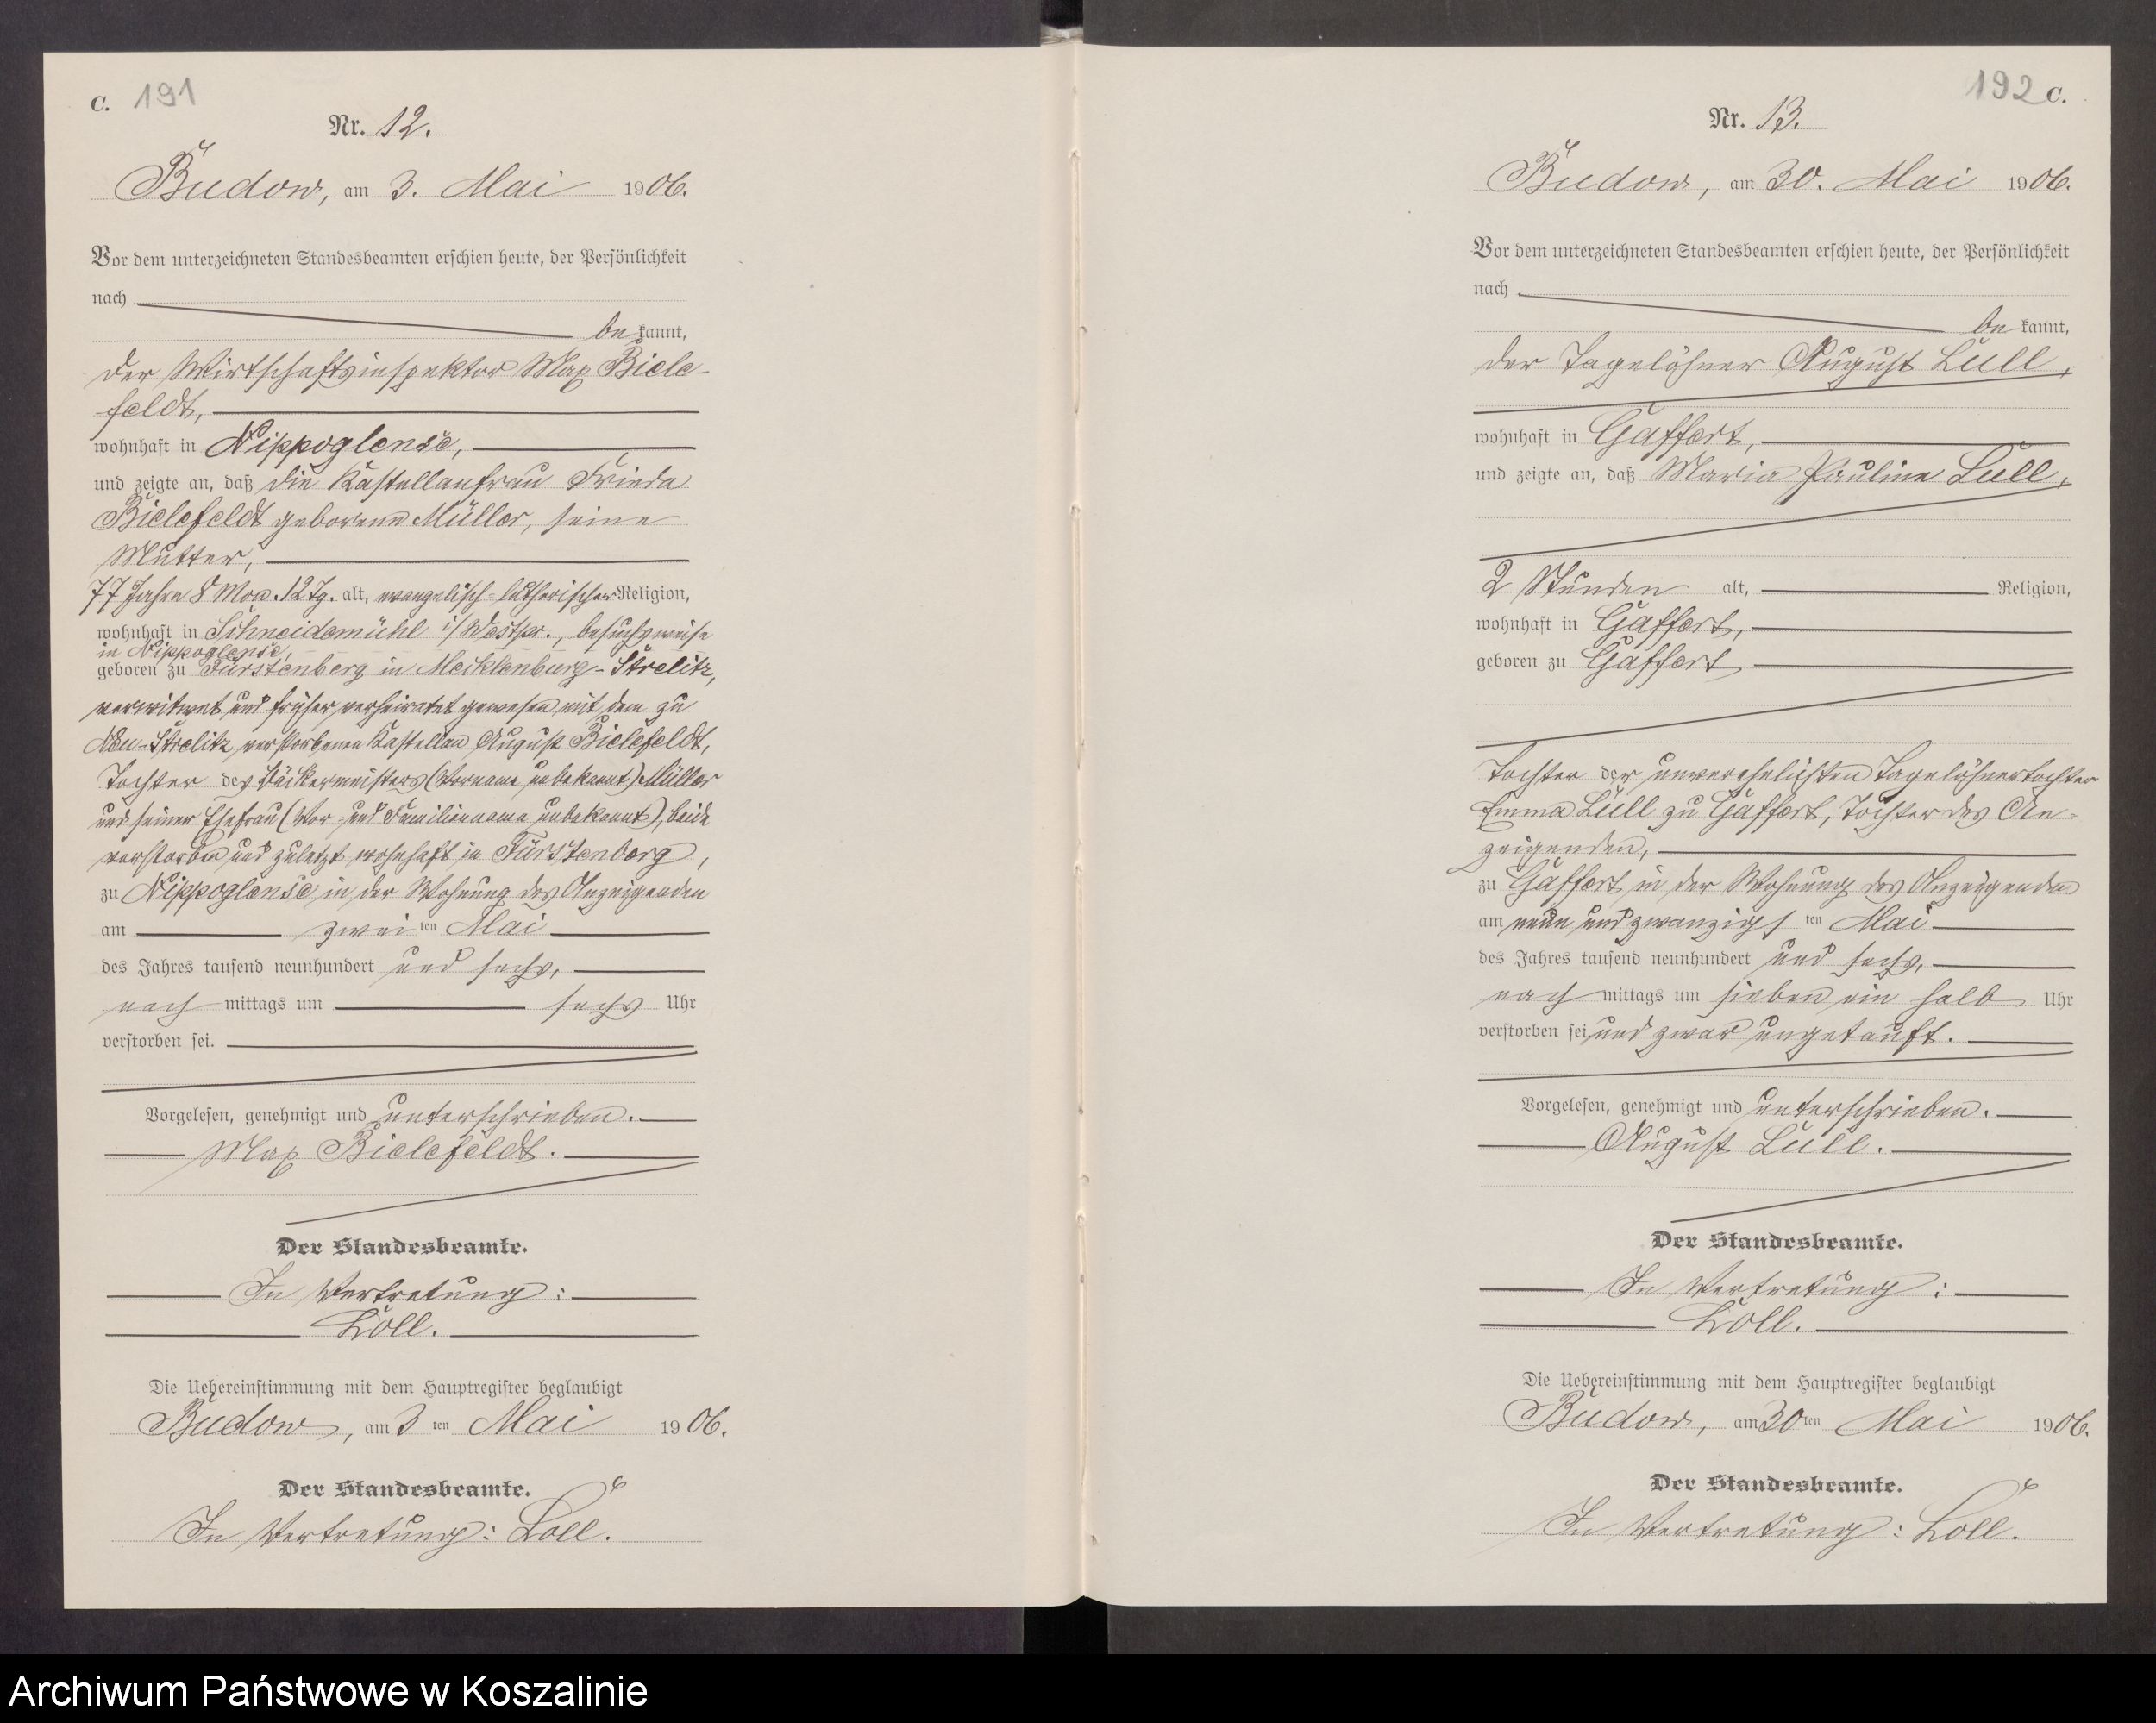 C. 191
Nr. 12.
Budow, am 3. Mai 1906.
Vor dem unterzeichneten Standesbeamten erschien heute, der Persönlichkeit
nach
bekannt,
der Wirtschaftsinspektor Max Biele-
feldt,
wohnhaft in Nippoglense,
und zeigte an, daß die Kastellanfrau Frieda
Bielefeldt geborene Müller, seine
Mutter,
77 Jahre 8 Mon. 12 Tg. alt, evangelisch-lutherischer Religion,
wohnhaft in Schneidemühl i/Westpr., besuchsweise
in Nippoglense,
geboren zu Fürstenberg in Mecklenburg-Strelitz,
verwitwet und früher verheiratet gewesen mit dem zu
Neu-Strelitz verstorbenen Kastellan August Bielefeldt,
Tochter des Bäckermeisters (Vorname unbekannt) Müller
und seiner Ehefrau (Vor- und Familienname unbekannt), beide
verstorben und zuletzt wohnhaft in Fürstenberg,
zu Nippoglense in der Wohnung des Anzeigenden
am zweiten Mai
des Jahres tausend neunhundert und sechs,
nachmittags um sechs Uhr
verstorben sei.
Vorgelesen, genehmigt und unterschrieben.
Max Bielefeldt.
Der Standesbeamte.
In Vertretung:
Loll.
Die Uebereinstimmung mit dem Hauptregister beglaubigt
Budow, am 3ten Mai 1906.
Der Standesbeamte.
In Vertretung: Loll.
192 C.
Nr. 13.
Budow, am 30. Mai 1906.
Vor dem unterzeichneten Standesbeamten erschien heute, der Persönlichkeit
nach
bekannt,
der Tagelöhner August Lull,
wohnhaft in Gaffert,
und zeigte an, daß Maria Pauline Lull,
2 Stunden alt, Religion,
wohnhaft in Gaffert,
geboren zu Gaffert
Tochter der unverehelichten Tagelöhnertochter
Emma Lull zu Gaffert, Tochter des An-
zeigenden,
zu Gaffert in der Wohnung des Anzeigenden
am neun und zwanzigsten Mai
des Jahres tausend neunhundert und sechs,
nachmittags um sieben ein halb Uhr
verstorben sei, und zwar ungetauft.
Vorgelesen, genehmigt und unterschrieben.
August Lull.
Der Standesbeamte.
In Vertretung:
Loll.
Die Uebereinstimmung mit dem Hauptregister beglaubigt
Budow, am 30ten Mai 1906.
Der Standesbeamte.
In Vertretung: Loll.
Archiwum Państwowe w Koszalinie